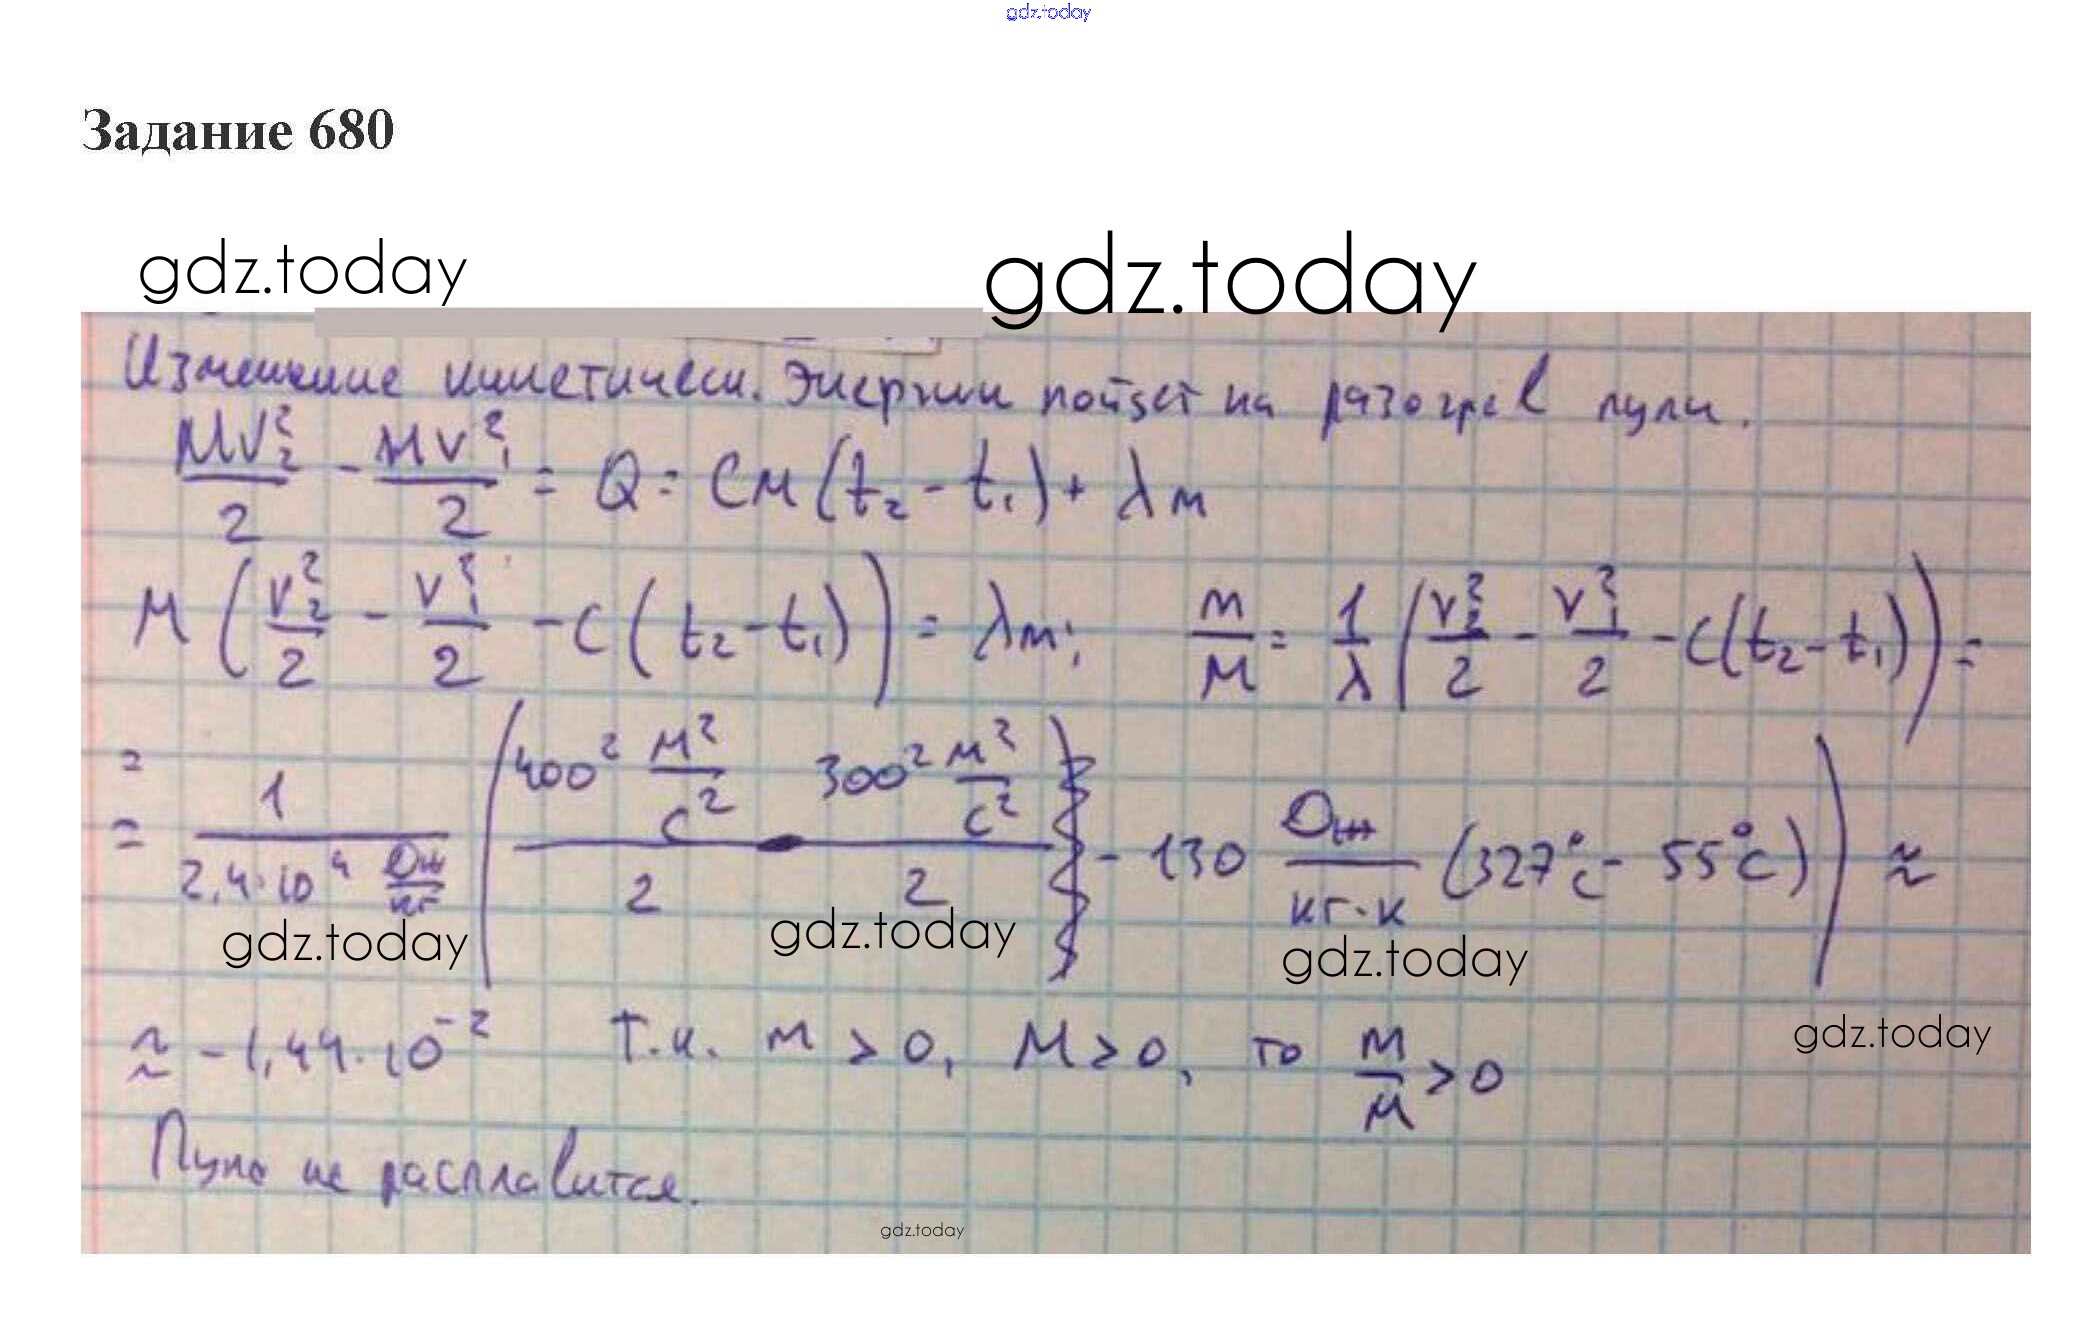 gdz.today
Задание 680
gdz.today gdz.today
Изменение кинетическ. энергии пойдет на разогрев пули.
Mv₂²/2 - Mv₁²/2 = Q = CM(t₂ - t₁) + λm
M(v₂²/2 - v₁²/2 - C(t₂ - t₁)) = λm; m/M = 1/λ (v₂²/2 - v₁²/2 - C(t₂ - t₁)) =
= 1/(2,4·10⁴ Дж/кг) (400² м²/с² / 2 - 300² м²/с² / 2 - 130 Дж/(кг·К) (327°C - 55°C)) ≈
gdz.today gdz.today gdz.today
≈ -1,44·10⁻² Т.к. m > 0, M > 0, то m/M > 0
gdz.today
Пуля не расплавится.
gdz.today